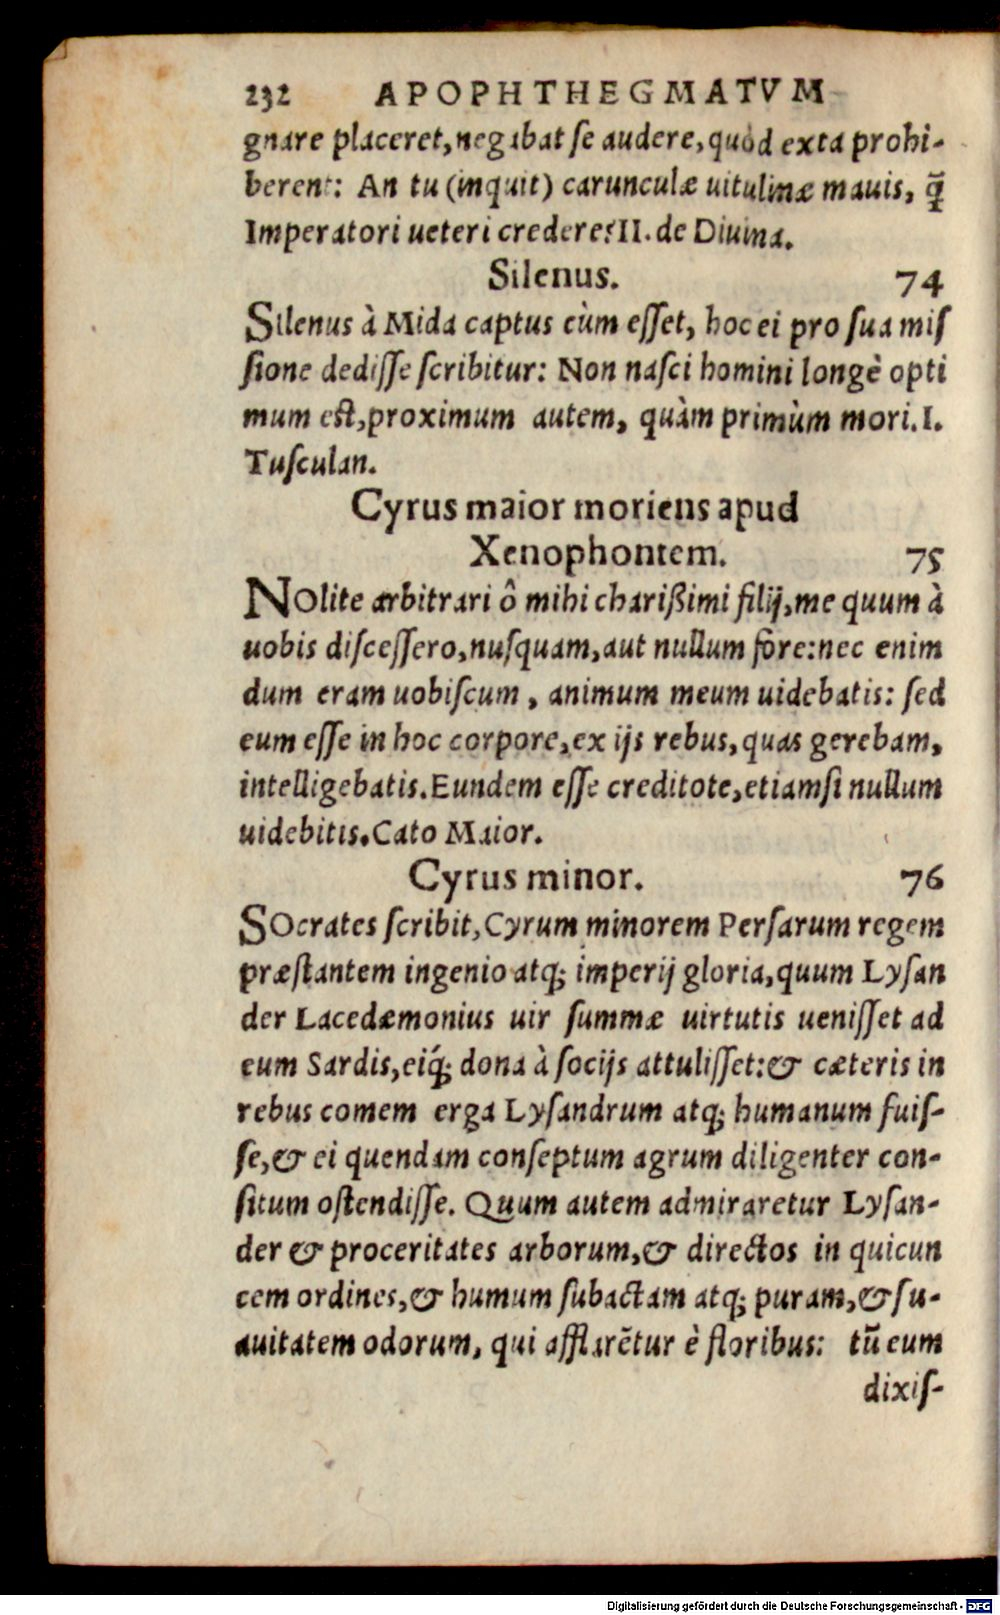 232 APOPHTHEGMATVM
gnare placeret, negabat ſe audere, quòd exta prohi-
berent: An tu (inquit) carunculæ uitulinæ mauis, q̃
Imperatori ueteri credere? II. de Diuina.
Silenus. 74
Silenus à Mida captus cùm eſſet, hoc ei pro ſua miſ
ſione dediſſe ſcribitur: Non naſci homini longè opti
mum eſt, proximum autem, quàm primùm mori. I.
Tuſculan.
Cyrus maior moriens apud
Xenophontem. 75
NOlite arbitrari ô mihi chariſsimi filij, me quum à
uobis diſceſſero, nuſquam, aut nullum fore: nec enim
dum eram uobiſcum, animum meum uidebatis: ſed
eum eſſe in hoc corpore, ex ijs rebus, quas gerebam,
intelligebatis. Eundem eſſe creditote, etiamſi nullum
uidebitis. Cato Maior.
Cyrus minor. 76
SOcrates ſcribit, Cyrum minorem Perſarum regem
præſtantem ingenio atq; imperij gloria, quum Lyſan
der Lacedæmonius uir ſummæ uirtutis ueniſſet ad
eum Sardis, eiq́; dona à ſocijs attuliſſet: & cæteris in
rebus comem erga Lyſandrum atq; humanum fuiſ-
ſe, & ei quendam conſeptum agrum diligenter con-
ſitum oſtendiſſe. Quum autem admiraretur Lyſan-
der & proceritates arborum, & directos in quicun
cem ordines, & humum ſubactam atq; puram, & ſu-
auitatem odorum, qui afflarẽtur è floribus: tũ eum
dixiſ-
Digitalisierung gefördert durch die Deutsche Forschungsgemeinschaft - DFG